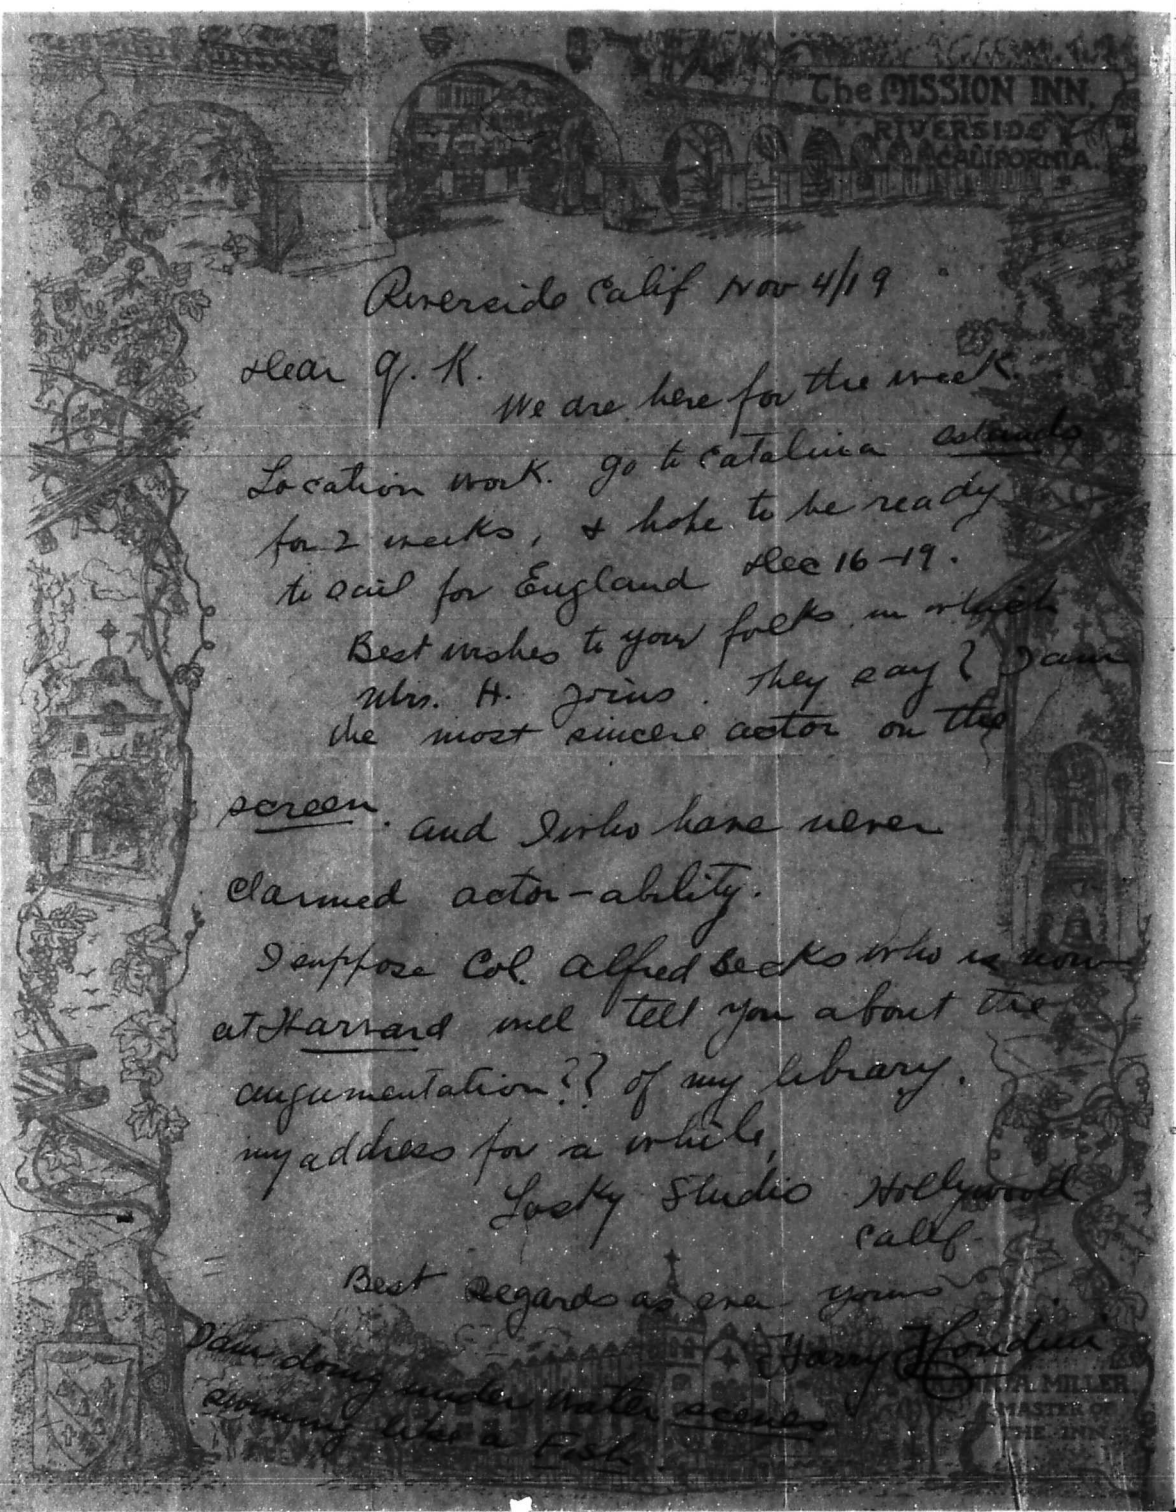 The MISSION INN,
RIVERSIDE
CALIFORNIA
Riverside Calif Nov 4/19
Dear Q. K.
We are here for the week.
Location work. go to Catalina
for 2 weeks, & hope to be ready
to sail for England Dec 16-19.
Best wishes to your folks in which
Mrs. H. joins. They say? I am
the most sincere actor on the
screen. and I who have never
claimed actor-ability.
I suppose Col. Alfred Becks who is now
at Harvard will tell you about the
augumentation?? of my library.
my address for a while,
Lasky Studio Hollywood
Calif.
Best Regards as ever yours
Harry Houdini
I am doing under water scenes
swimming like a Fish.
MILLER
MASTER OF
THE INN